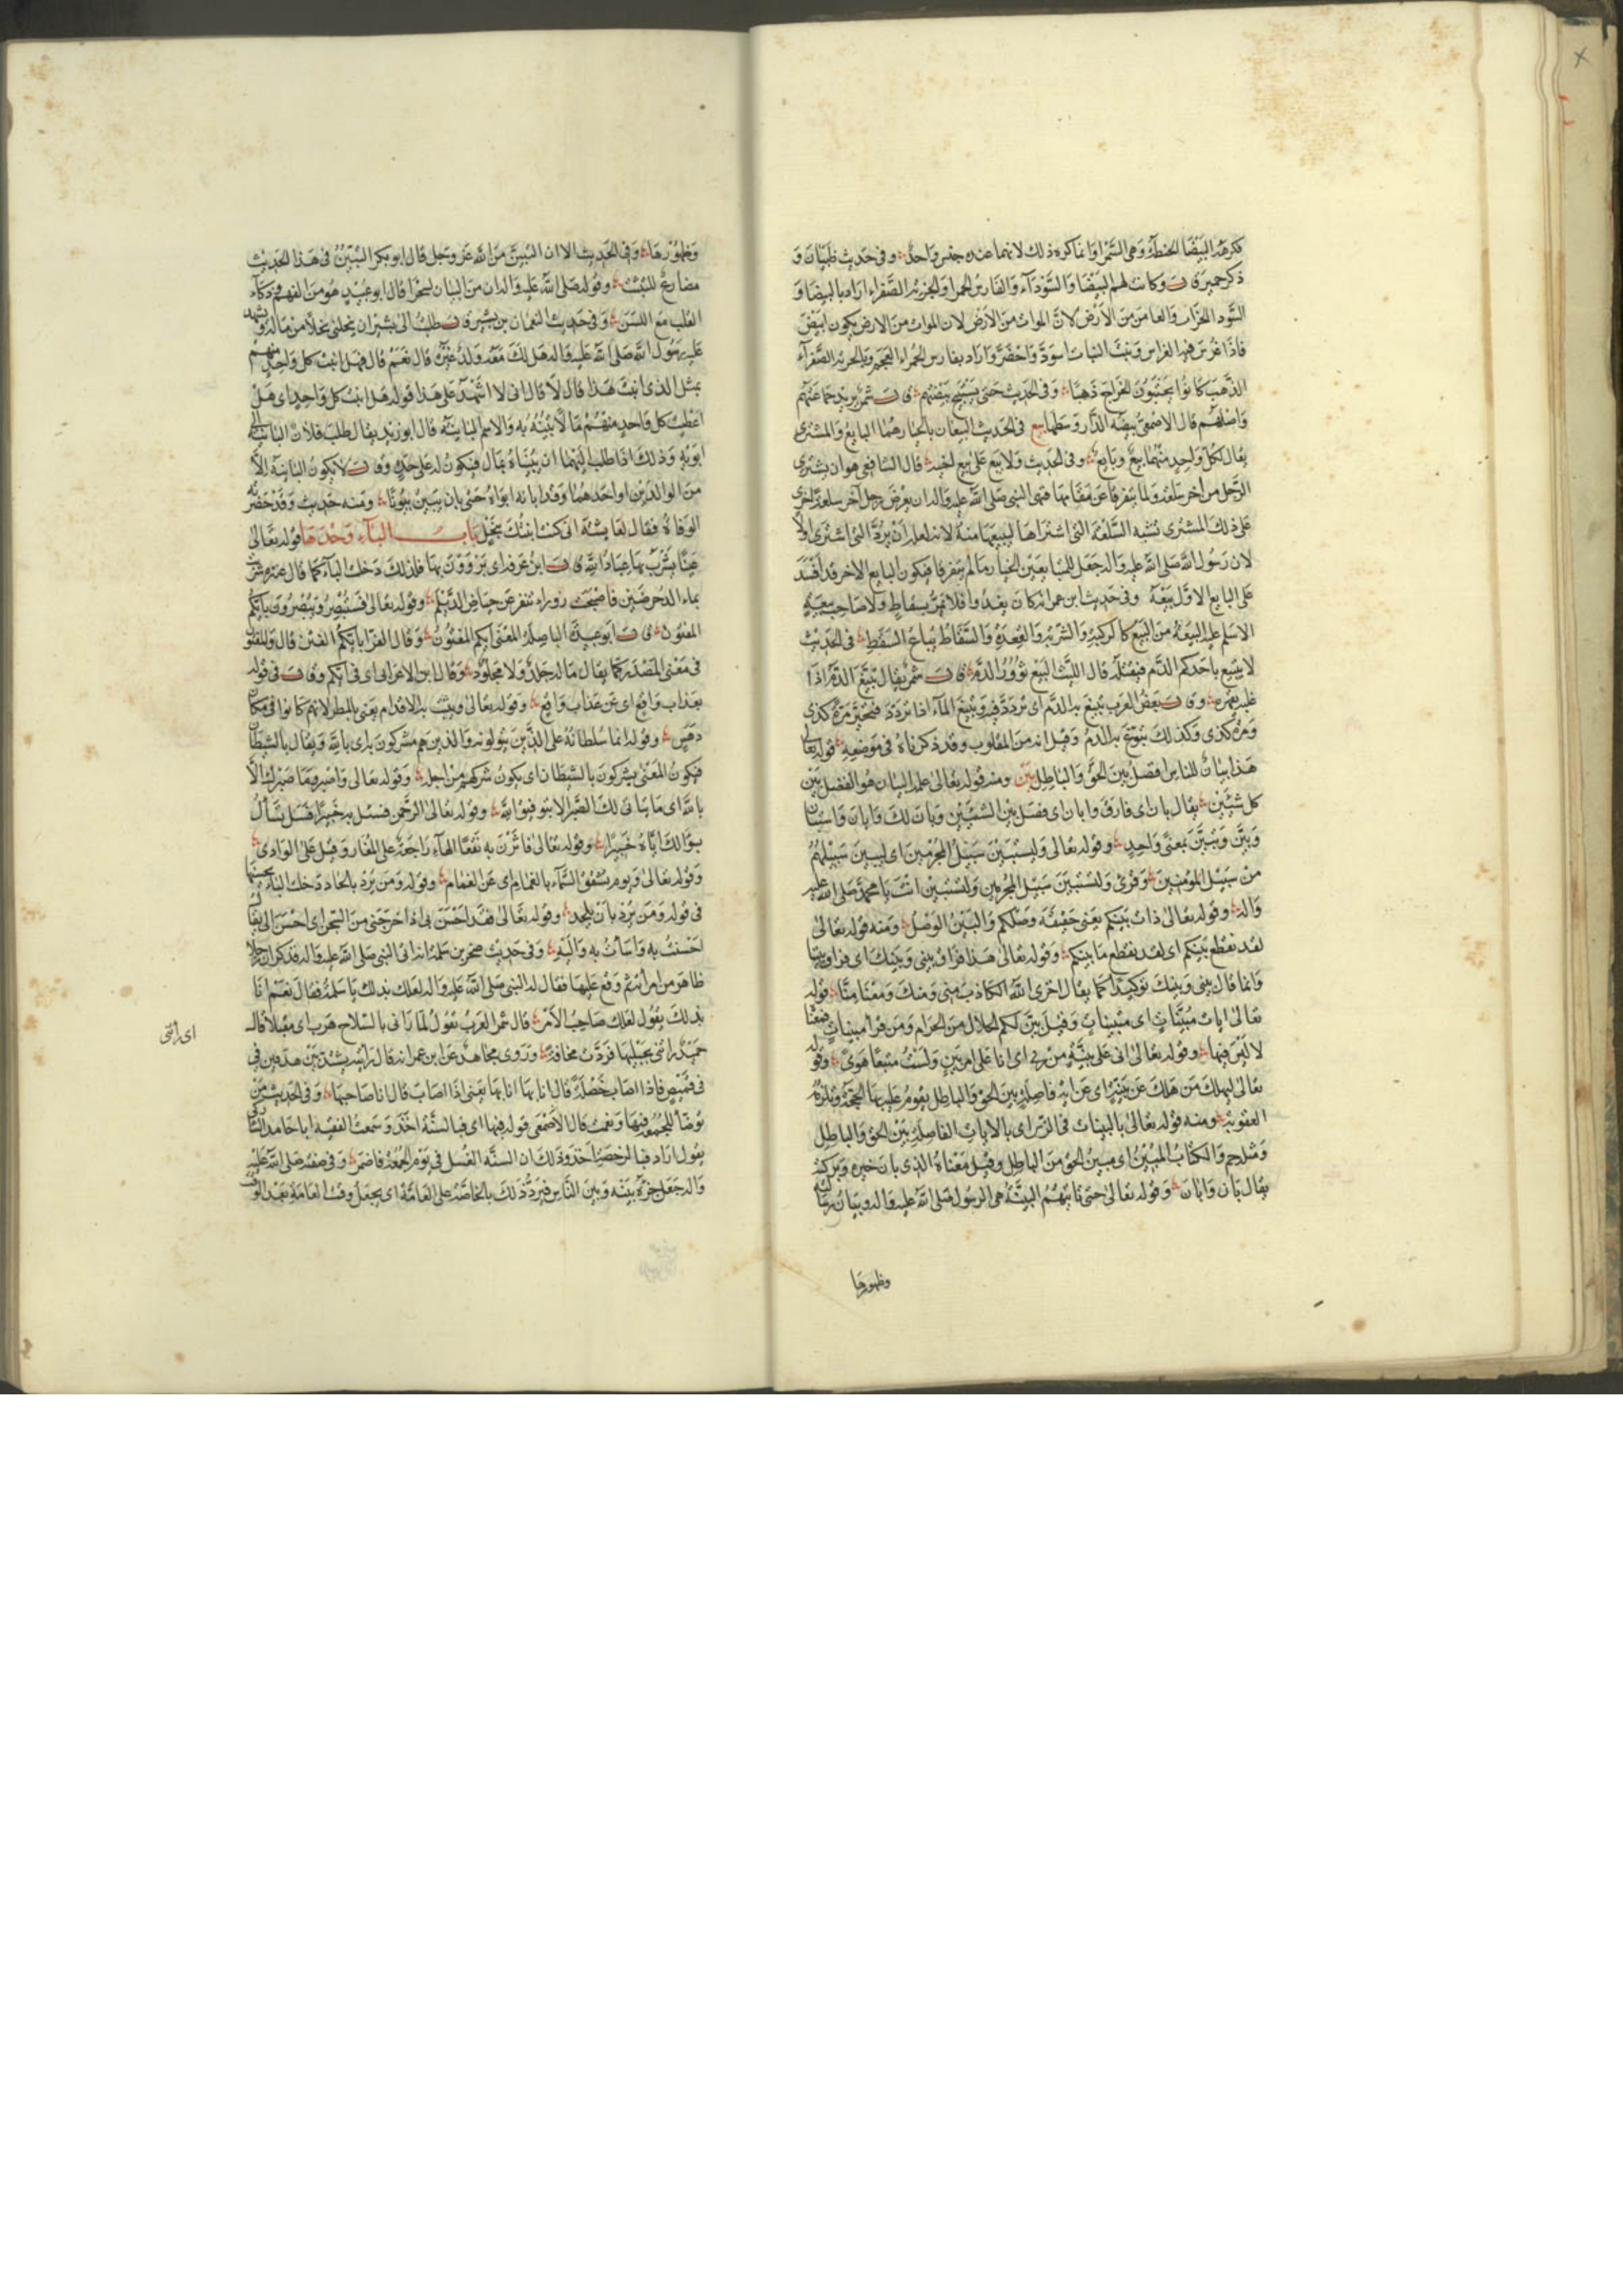 فكرهه البيضا الحنطة وهى السمرا وانما كره ذلك لانهما عنده جنس واحد وفى حديث ظبيان و
ذكر حمير قال وكانت لهم البيضا والسودآء وفارس الحمرا والجزية الصفراء اراد بالبيضا و
السود الخراب والعامر من الارض لان الموات من الارض يكون ابيض
فاذا غرس فيه الغراس ونبت النبات اسود واخضر واراد بفارس الحمراء العجم وبالجزية الصفرآء
الذهب كانوا يجتبون الخراج ذهبا وفى الحديث حتى يستبيح بيضتهم قال شمر يريد جماعتهم
واصلهم قال الاصمعى بيضة الدار وسطها بيع فى الحديث البيعان بالخيار هما البايع والمشترى
يقال لكل واحد منهما بيع وبايع وفى الحديث ولا يبع على بيع اخيه قال الشافعى هو ان يشترى
الرجل من اخر سلعة ولما يتفرقا عن مقامهما فنهى النبى صلى الله عليه واله ان يعرض رجل آخر سلعة اخرى
على ذلك المشترى تشبه السلعة التى اشتراها ليبيعها منه لانه لعله ان يرد التى اشترى اولا
لان رسول الله صلى الله عليه واله جعل للمتبايعين الخيار ما لم يتفرقا فيكون البايع الاخر قد افسد
على البايع الاول بيعه وفى حديث ابن عمر انه كان يغدوا فلا يمر بسقاط ولا صاحب بيعة
الا سلم عليه البيعة من البيع كالركبة والشربة والقعدة والسقاط بياع السقط فى الحديث
لا يتبيغ باحدكم الدم فيقتله قال الليث البيغ ثؤور الدم قال شمر يقال تبيغ الدم اذا
غلبه بقهره وقال بعض العرب تبيغ به الدم اى تردد فيه وتبيغ المآء اذا تردد فتحير مرة كذى
ومرة كذى وكذلك تبوغ به الدم وقيل انه من المقلوب وقد ذكرناه فى موضعه قوله تعالى
هذا بيان للناس افصل بين الحق والباطل بين ومنه قوله تعالى علمه البيان هو الفصل بين
كل شيئين يقال بان اى فارق وابان اى فصل بين الشيئين وبان لك وابان واستبان
وبين وتبين بمعنى واحد وقوله تعالى وليستبين سبيل المجرمين اى ليبين سبيلهم
من سبيل المؤمنين وقرئ ولتستبين سبيل المجرمين ولتستبين انت يا محمد صلى الله عليه
واله وقوله تعالى ذات بينكم يعنى حقيقة وصلكم والبين الوصل ومنه قوله تعالى
لقد تقطع بينكم اى لقد تقطع ما بينكم وقوله تعالى هذا فراق بينى وبينك اى فراق بيننا
وانما قال بينى وبينك توكيدا كما يقال اخزى الله الكاذب منى ومنك ومعناه منا قوله
تعالى ايات مبينات اى متبينات وقيل بين لكم الحلال من الحرام ومن قرا مبينات فمعناه
لا لبس فيها وقوله تعالى انى على بينة من ربى اى انا على امر بين ولست متبعا هوى وقوله
تعالى ليهلك من هلك عن بينة اى عن اية فاصلة بين الحق والباطل يقوم عليه بها الحجة وتلزمه
العقوبة ومنه قوله تعالى بالبينات فى الزبر اى بالايات الفاصلة بين الحق والباطل
ومثله حم والكتاب المبين اى مبين الحق من الباطل وقيل معناه الذى بان خيره وبركته
يقال بان وابان وقوله تعالى حتى تاتيهم البينة هى الرسول صلى الله عليه واله وبيان رسالته
وظهورها
وظهورها وفى الحديث الا ان التبين من الله عز وجل قال ابو بكر التبين فى هذا الحديث
مضارع للتثبت وقوله صلى الله عليه واله ان من البيان لسحرا قال ابو عبيد هو من الفهم وذكآء
القلب مع اللسن وفى حديث النعمان بن بشير قال طلبت الى بشير ان ينحلنى نخلا من ماله ويشهد
عليه رسول الله صلى الله عليه واله هل لك معه ولد غيره قال نعم قال فهل ابنت كل واحد منهم
بمثل الذى ابنت هذا قال لا قال انى لا اشهد على هذا قوله هل ابنت كل واحد اى هل
اعطيت كل واحد منهم مالا تبينه به والاسم البائنة قال ابو زيد يقال طلب فلان البائنة الى
ابويه وذلك اذا طلب اليهما ان يبيناه بمال فيكون له على حدة وقال لا يكون البائنة الا
من الوالدين او احدهما وقد ابانه ابواه حتى بان يبين بيونا ومنه حديث وقد حضرته
الوفاة فقال لعايشة انى كنت ابنتك بنحل باب البآء وحدها قوله تعالى
عينا يشرب بها عباد الله قال ابن عرفة اى يروون بها فلذلك دخلت البآء كما قال عنترة شربت
بماء الدحرضين فاصبحت زوراء تنفر عن حياض الديلم وقوله تعالى فستبصر ويبصرون بايكم
المفتون قال ابو عبيدة الباصلة المعنى ايكم المفتون وقال الفرا بايكم الفتن قال والمفتون
فى معنى المصدر كما يقال ماله جلد ولا مجلود وقال ابن الاعرابى اى فى ايكم وقال فى قوله
بعذاب واقع اى عن عذاب واقع وقوله تعالى ويثبت به الاقدام يعنى بالمطر لانهم كانوا فى مكان
دهس وقوله انما سلطانه على الذين يتولونه والذين هم مشركون اى بالله ويقال بالشيطان
فيكون المعنى يشركون بالشيطان اى يكون شركهم من اجله وقوله تعالى واصبر وما صبرك الا
بالله اى ما يتاتى لك الصبر الا بتوفيق الله وقوله تعالى الرحمن فسئل به خبيرا فسل بسألك
بسؤالك اياه خبيرا وقوله تعالى فاثرن به نقعا الهآء راجعة على المغار وقيل على الوادى
وقوله تعالى ويوم تشقق السمآء بالغمام اى عن الغمام وقوله ومن يرد بالحاد دخلت البآء لحسنها
فى قوله ومن يرد بان يلحد وقوله تعالى فقد احسن بى اذ اخرجنى من السجن اى احسن الى يقال
احسنت به واسأت به واليه وفى حديث صخر بن سلمة انه اتى النبى صلى الله عليه واله فذكر ان رجلا
ظاهر من امراته ثم وقع عليها فقال له النبى صلى الله عليه واله لعلك بذلك يا سلمة فقال نعم انا
بذلك يقول لعلك صاحب الامر قال شمر العرب تقول لما رانى بالسلاح هرب اى مقبلا قال
اى راتنى
حميد راتنى بحبليها فردت مخافة وروى مجاهد عن ابن عمر انه قال رايته يشتد بين هدفين فى
فى قميص فاذا اصاب خصلة قال انا بها انا بها يعنى اذا اصاب قال انا صاحبها وفى الحديث من
توضا للجمعة فبها ونعمت قال الاصمعى قوله فبها اى فبالسنة اخذ وسمعت الفقيه ابا حامد الشاركى
يقول اراد فبالرخصة اخذ وذلك ان السنة الغسل فى يوم الجمعة فاضمر وفى صفته صلى الله عليه
واله جعل جزءه بينه وبين الناس فيرد ذلك بالخاصة على العامة اى يجعل وقت العامة بعد الوقت